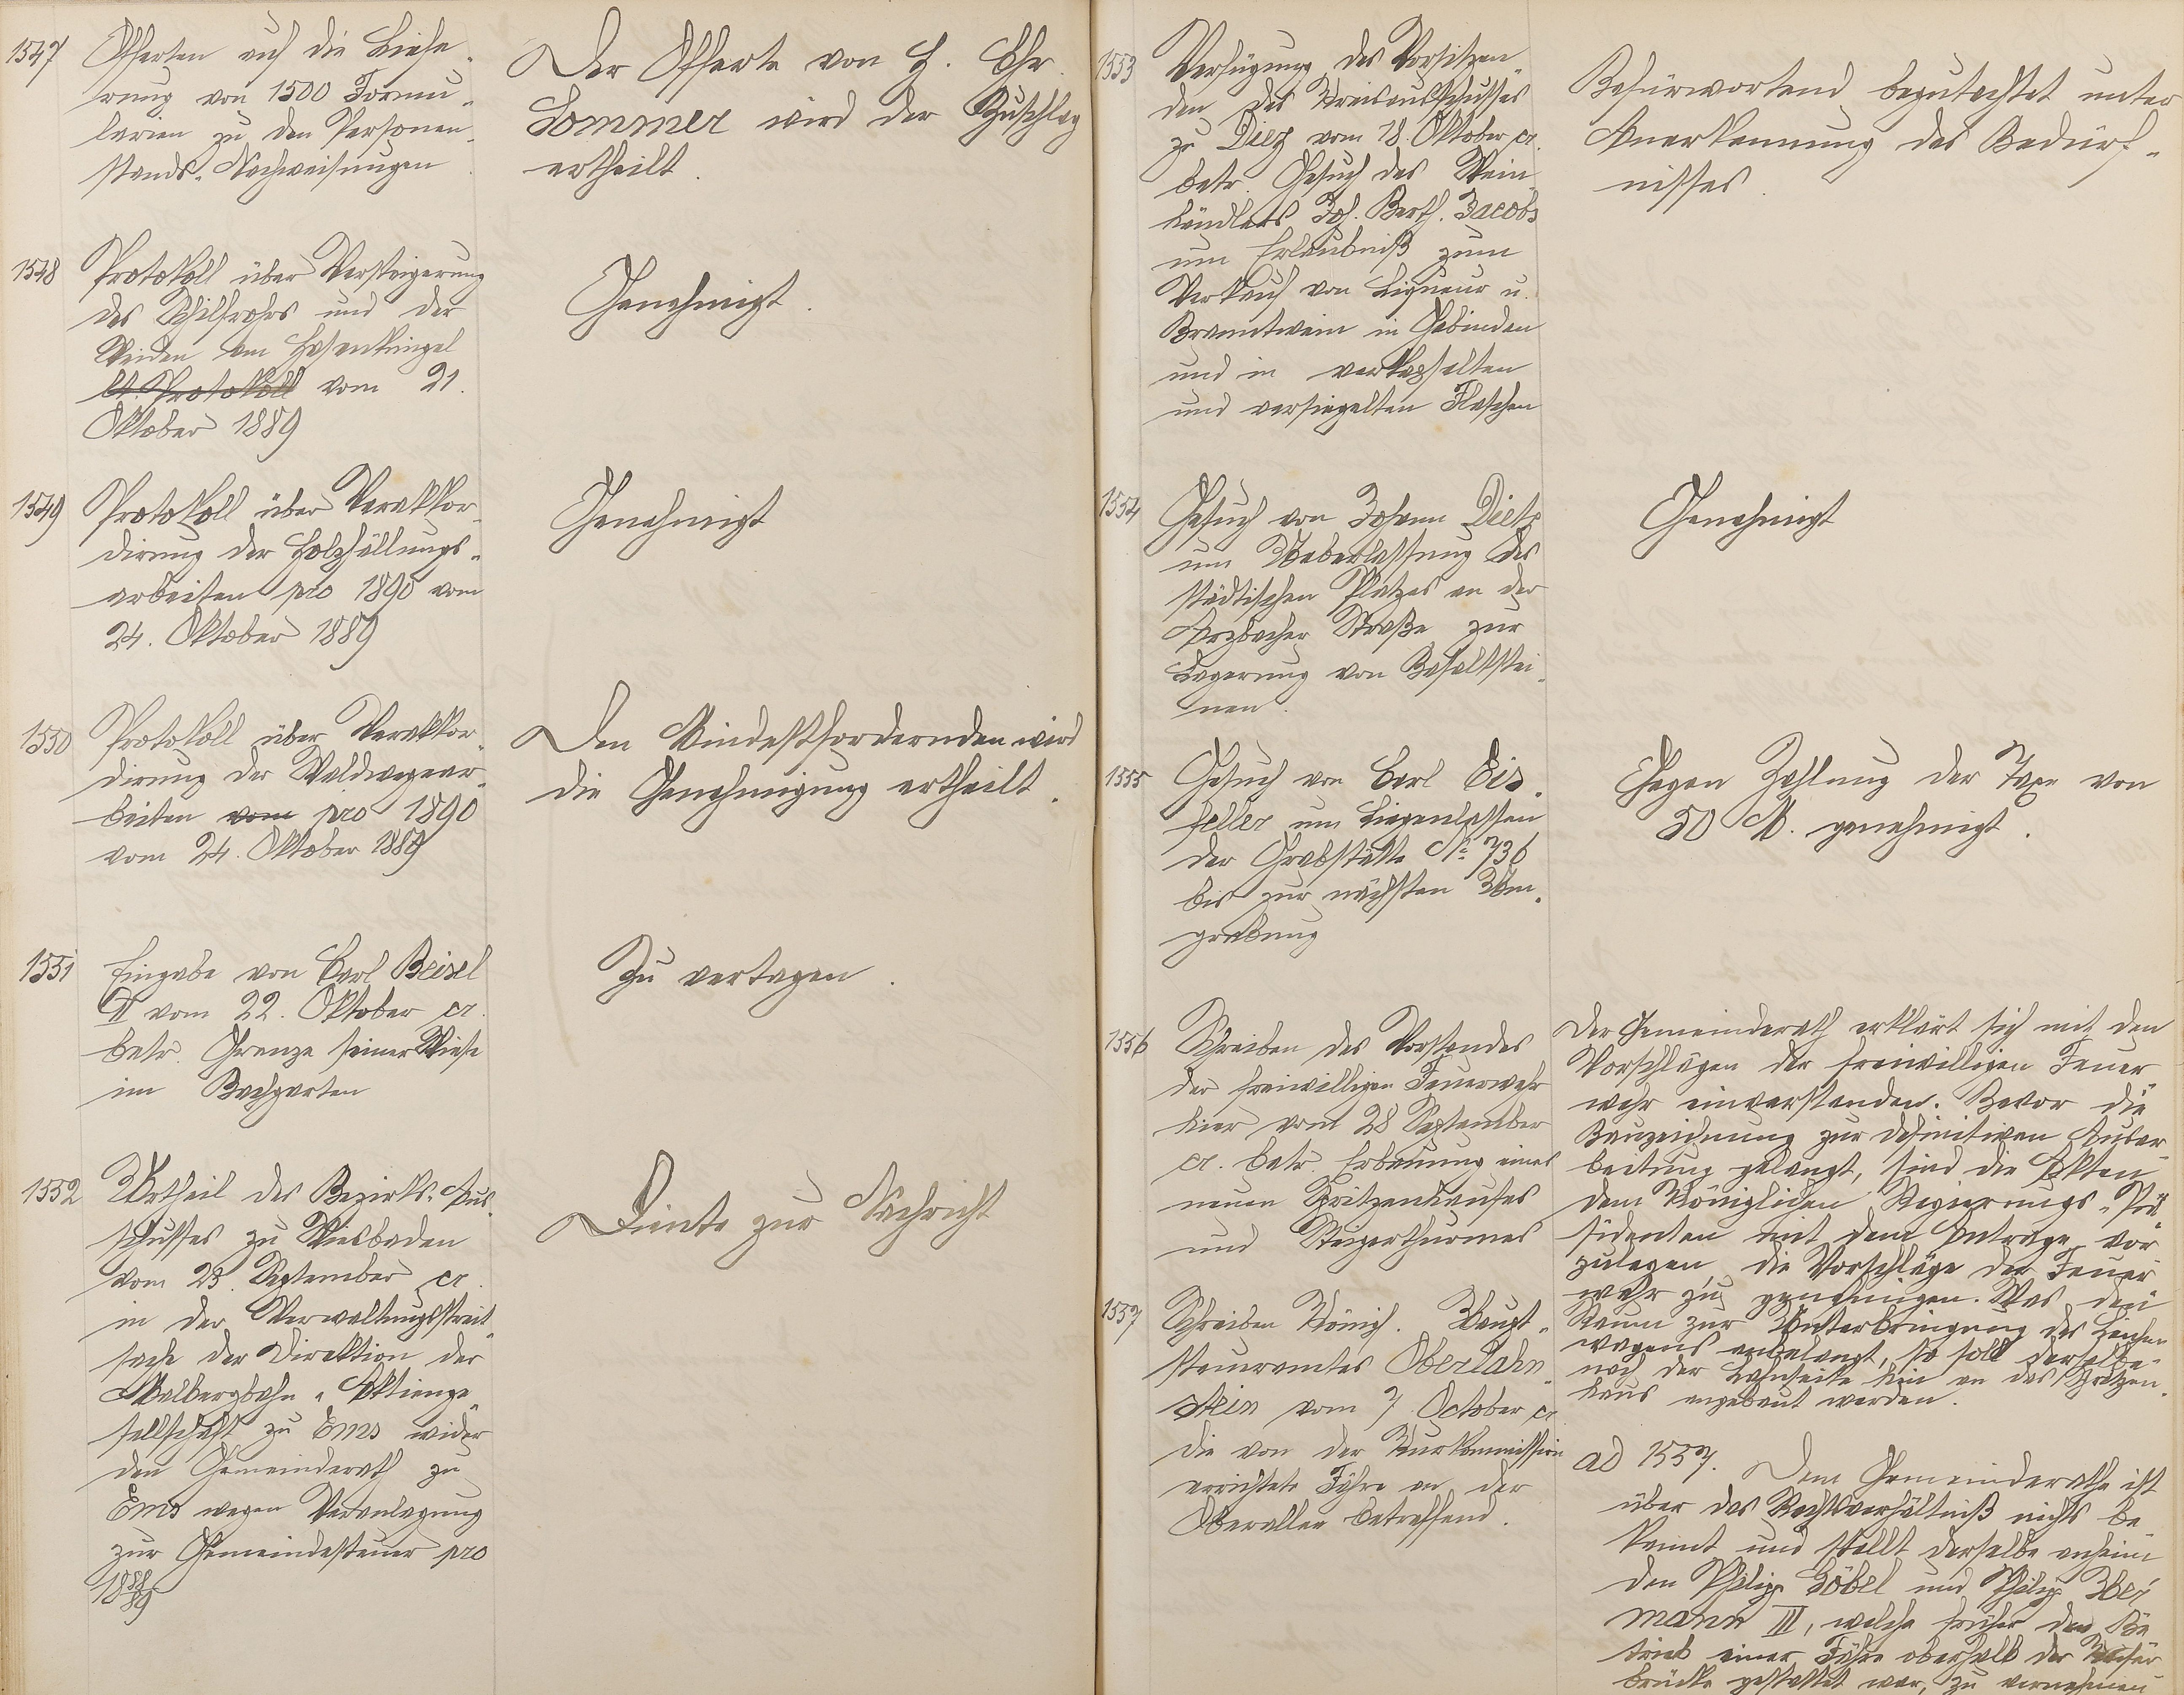 1547 Offerten auf die Liefe-
rung von 1500 Formu-
larien zu den Personen-
stands-Nachweisungen
Der Offerte von H. Chr.
Sommer wird der Zuschlag
ertheilt.
1548 Protokoll über Versteigerung
des Schilfrohrs und der
Weiden am Hasenküngel
lt. Protokoll vom 21.
Oktober 1889
Genehmigt.
1549 Protokoll über Verakkor-
dirung der Holzfällungs-
arbeiten pro 1890 vom
24. Oktober 1889
Genehmigt
1550 Protokoll über Verakkor-
dirung der Waldwegear-
beiten vom pro 1890
vom 24. Oktober 1889
Den Mindestfordernden wird
die Genehmigung ertheilt.
1551 Eingabe von Carl Beisel
II vom 22. Oktober cr.
betr. Grenze seiner Wiese
im Bachgarten
Zu vertagen.
1552 Urtheil des Bezirks-Aus-
schusses zu Wiesbaden
vom 23. September cr.
in der Verwaltungsstreit-
sache der Direktion der
Malbergbahn-Aktienge-
sellschaft zu Ems wider
den Gemeinderath zu
Ems wegen Veranlagung
zur Gemeindesteuer pro
1888/89
Diente zur Nachricht
1553 Verfügung des Vorsitzen-
den des Kreisausschusses
zu Diez vom 18. Oktober cr.
betr. Gesuch des Wein-
händlers Joh. Berth. Jacobs
um Erlaubniß zum
Verkauf von Liqueur u.
Branntwein in Gebinden
und in verkapselten
und versiegelten Flaschen
Befürwortend begutachtet unter
Anerkennung des Bedürf-
nisses.
1554 Gesuch von Johann Dietz
um Ueberlassung des
städtischen Platzes an der
Arzbacher Straße zur
Lagerung von Basaltstei-
nen.
Genehmigt
1555 Gesuch von Carl Eis-
feller um Liegenlassen
der Grabstätte No 736
bis zur nächsten Um-
grabung
Gegen Zahlung der Taxe von
50 M. genehmigt.
1556 Schreiben des Vorstandes
der freiwilligen Feuerwehr
hier vom 28 September
cr. betr. Erbauung eines
neuen Spritzenhauses
und Steigerthurmes
Der Gemeinderath erklärt sich mit den
Vorschlägen der freiwilligen Feuer-
wehr einverstanden. Bevor die
Bauzeichnung zur definitiven Ausar-
beitung gelangt, sind die Akten
dem Königlichen Regierungs-Prä-
sidenten mit dem Antrage vor-
zulegen, die Vorschläge der Feuer-
wehr zu genehmigen. Was den
Raum zur Unterbringung des Leichen-
wagens anbelangt, so soll derselbe
nach der Lahnseite hin an das Spritzen-
haus angebaut werden.
1557 Schreiben Königl. Haupt-
steueramtes Oberlahn-
stein vom 7. October cr
die von der Kurkommission
errichtete Fähre an der
Oberallee betreffend.
ad 1557. Dem Gemeinderathe ist
über das Rechtsverhältniß nichts be-
kannt und stellt derselbe anheim
den Philipp Göbel und Philipp
mann III, welche früher der Be-
trieb einer Fähre oberhalb der
brücke gestattet war, zu vernehmen